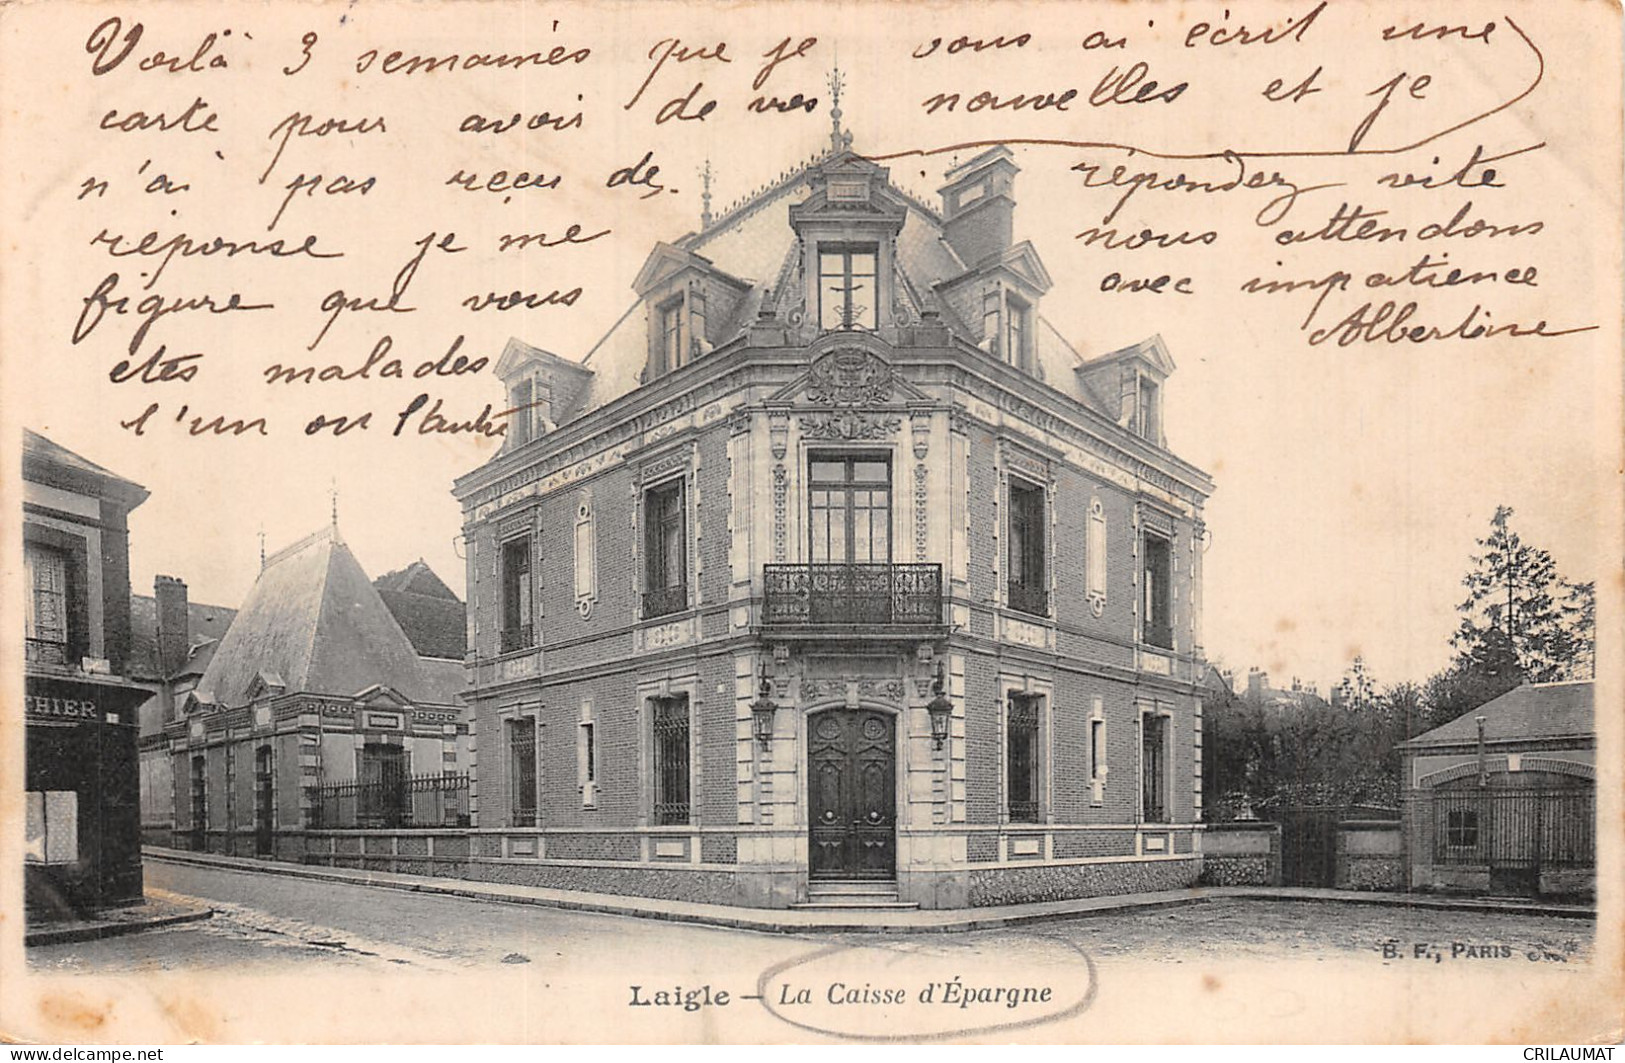 Voilà 3 semaines que je vous ai écrit une
carte pour avoir de vos nouvelles et je
n'ai pas reçu de
réponse je me
figure que vous
etes malades
l'un ou l'autre
répondez vite
nous attendons
avec impatience
Albertine
THIER
B. F., PARIS
Laigle — La Caisse d'Épargne
delcampe.net
CRILAUMAT